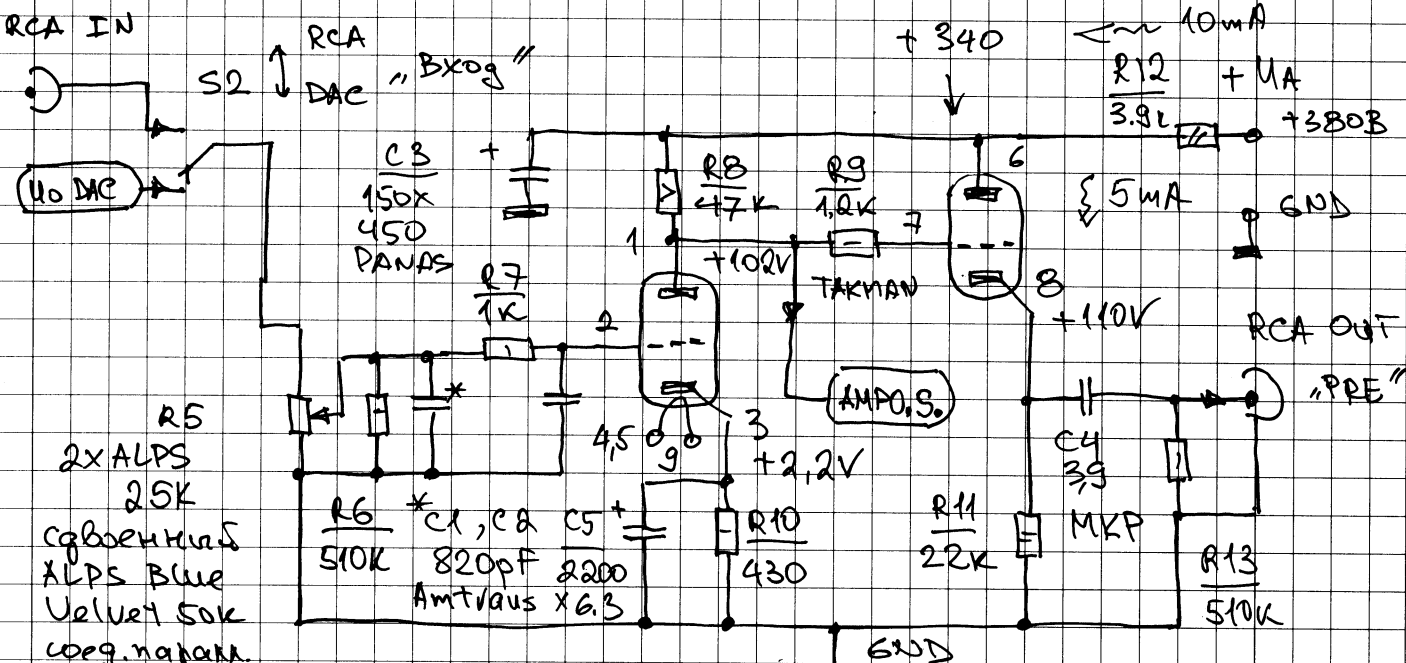 RCA IN
S2
RCA
DAC
„Вход"
+340
10mA
R12
3.9k
+ UA
+380В
ИО DAC
C3
+
150x
450
PANAS
R8
47K
R9
1,2K
6
5mA
GND
1
+102V
7
TAKMAN
8
+110V
R7
1K
2
RCA OUT
„PRE"
*
AMPO.S.
R5
2XALPS
25K
сдвоенный
ALPS Blue
Velvet 50K
соед. паралл.
4,5
9
3
+2,2V
C4
3,9
MKP
R6
510K
*C1, C2
820pF
Amtraus
C5
+
2200
x6.3
R10
430
R11
22K
R13
510K
GND